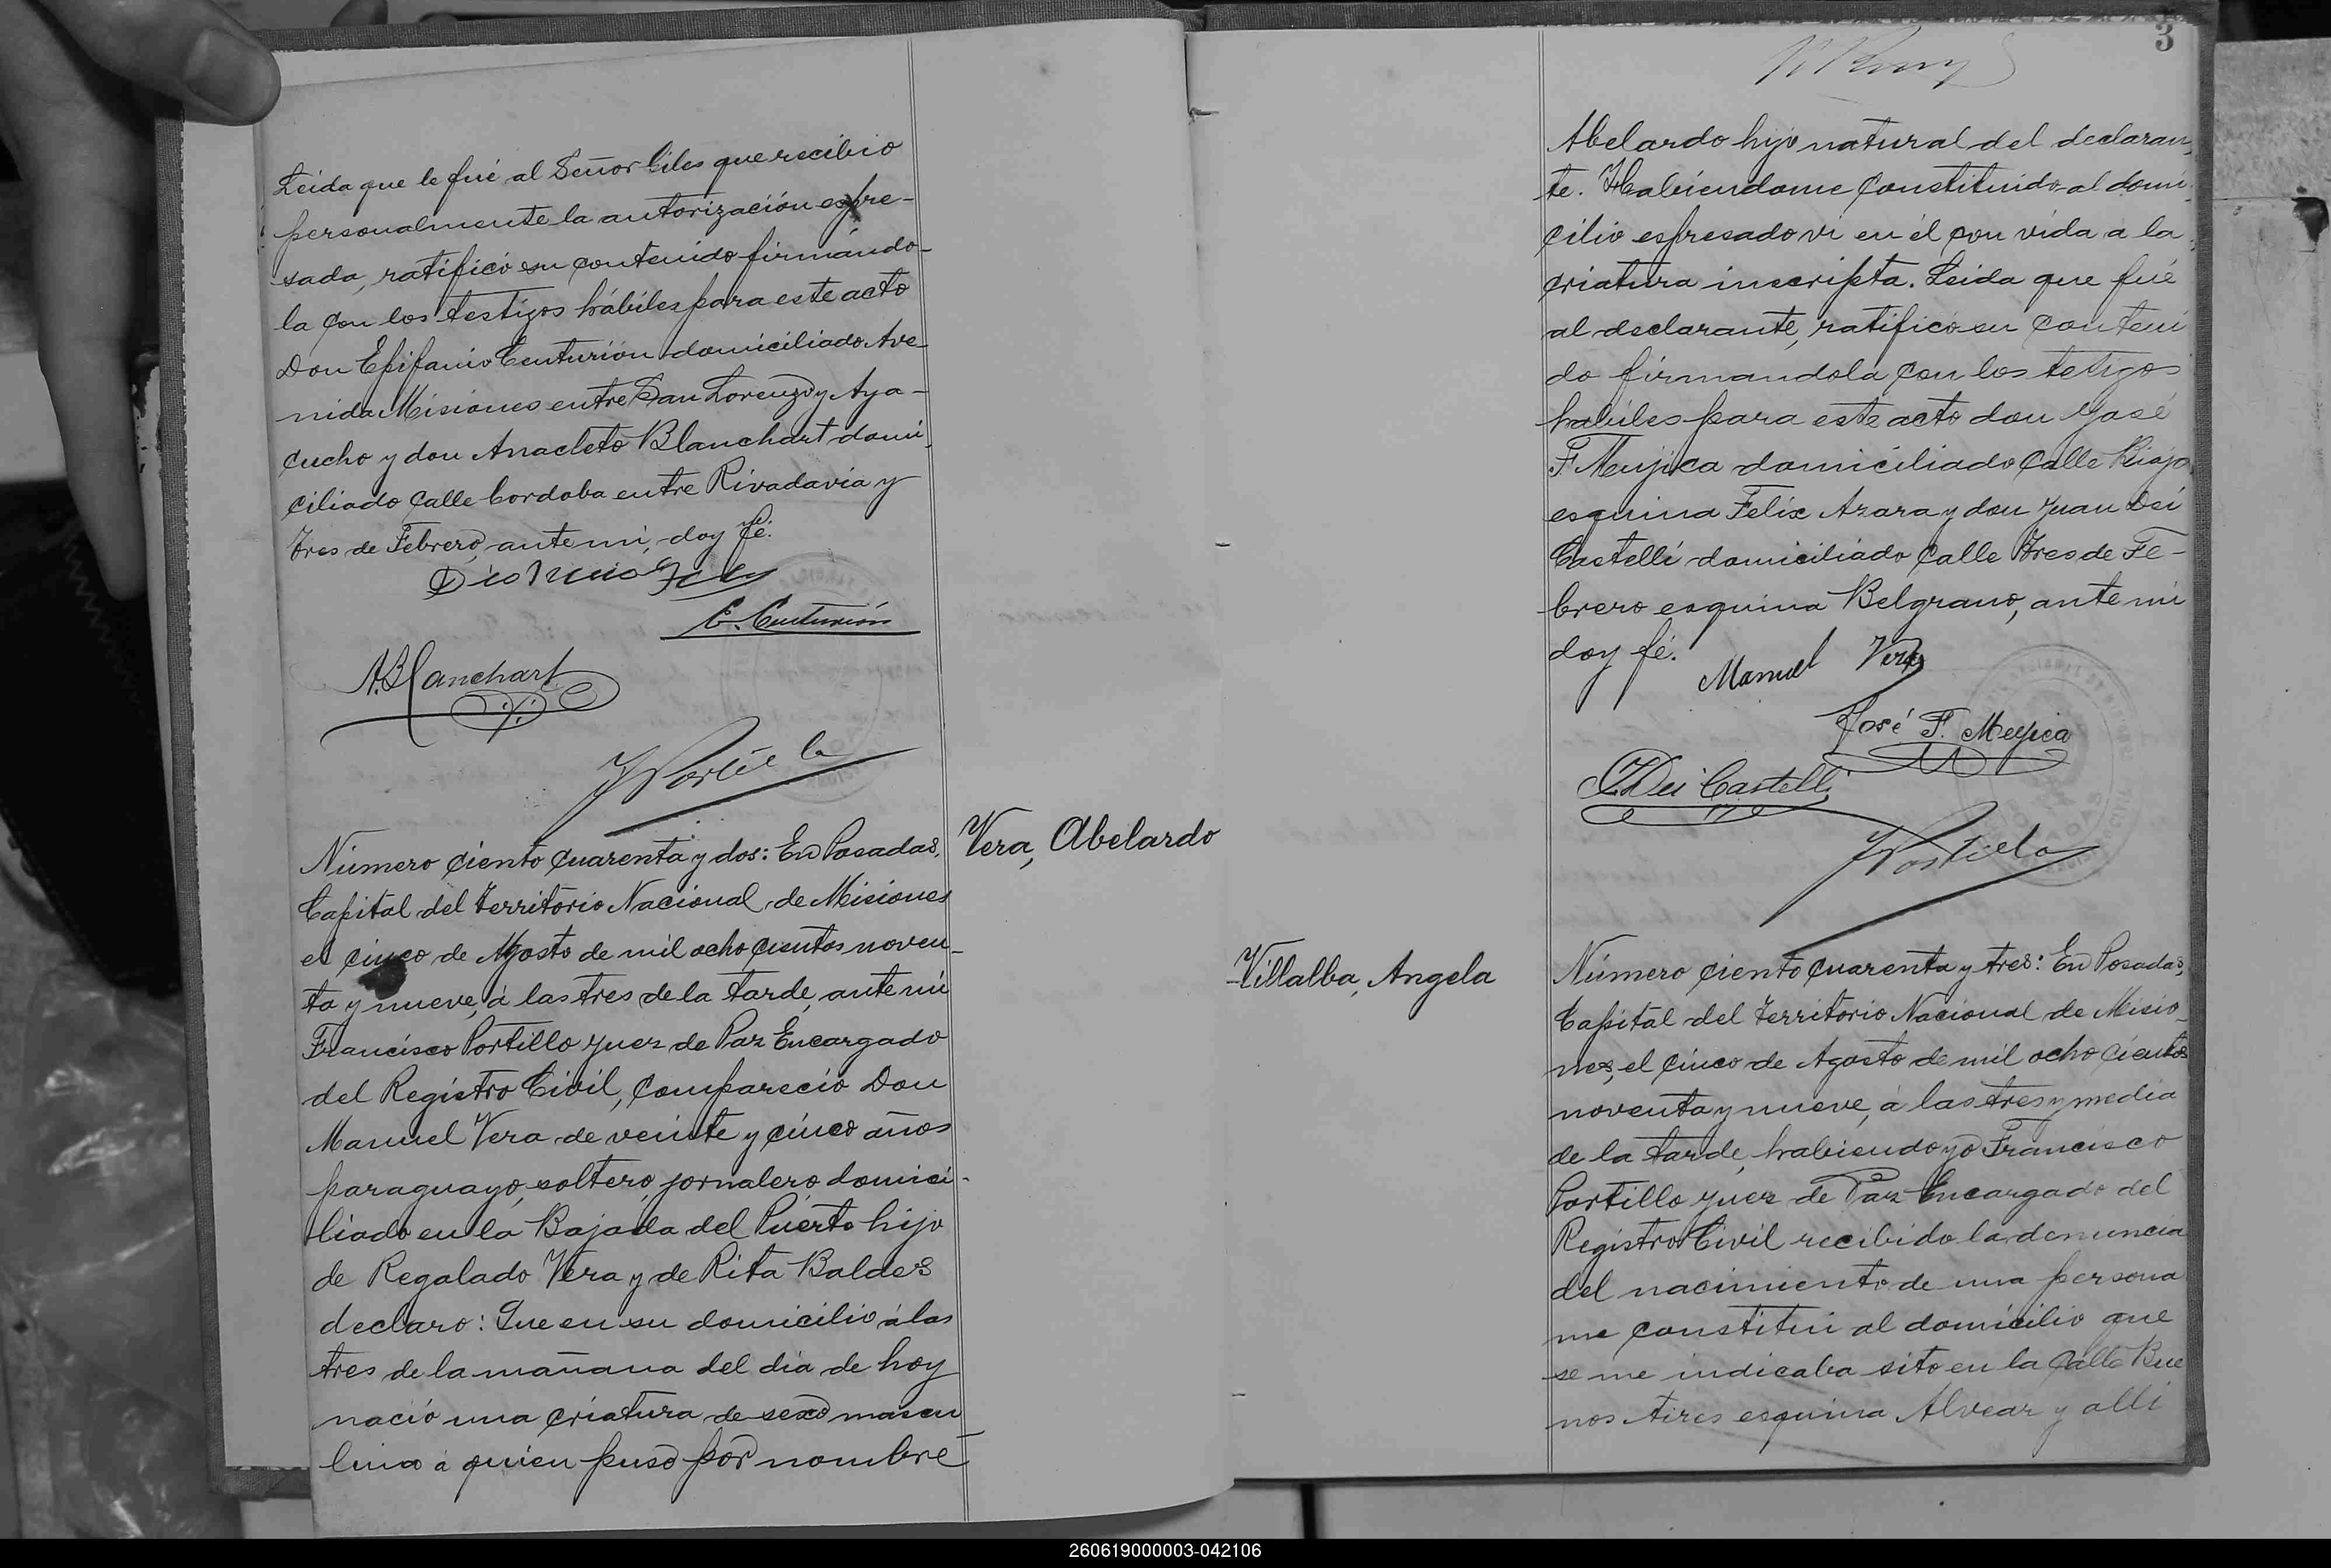 Leida que le fué al Señor Giles que recibio
personalmente la autorización expre-
sada, ratificó su contenido firmándo-
la con los testigos hábiles para este acto
Don Epifanio Centurión domiciliado Ave-
nida Misiones entre San Lorenzo y Aya-
cucho y don Anacleto Blanchart domi-
ciliado calle Cordoba entre Rivadavia y
Tres de Febrero, ante mi, doy fé.
E. Centurión
A. Blanchart
Número ciento cuarenta y dos: En Posadas,
Capital del Territorio Nacional de Misiones
el cinco de Agosto de mil ocho cientos noven-
ta y nueve, á las tres de la tarde, ante mi
Francisco Portillo Juez de Paz Encargado
del Registro Civil, compareció Don
Manuel Vera de veinte y cinco años
paraguayo, soltero, jornalero, domici-
liado en la Bajada del Puerto hijo
de Regalado Vera y de Rita Baldes
declaro: Que en su domicilio á las
tres de la mañana del dia de hoy
nació una criatura de sexo mascu
lino á quien puso por nombre
Vera, Abelardo
3
Abelardo hijo natural del declaran-
te. Habiendome constituido al domi-
cilio espresado vi en él con vida a la
criatura inscripta. Leida que fué
al declarante, ratificó su conteni
do firmandola con los tetigos
habiles para este acto don José
F. Mujica domiciliado Calle Rioja
esquina Felix Azara y don Juan Dei
Castelli domiciliado calle Tres de Fe-
brero esquina Belgrano, ante mi
doy fé.
Manuel Vera
José F. Mujica
J Dei Castelli
Villalba, Angela
Número ciento cuarenta y tres: En Posadas,
Capital del Territorio Nacional de Misio-
nes, el cinco de Agosto de mil ocho cientos
noventa y nueve, á las tres y media
de la tarde, habiendo yo Francisco
Portillo Juez de Paz Encargado del
Registro Civil recibido la denuncia
del nacimiento de una persona
me constitui al domicilio que
se me indicaba sito en la calle Bue
nos Aires esquina Alvear y alli
260619000003-042106